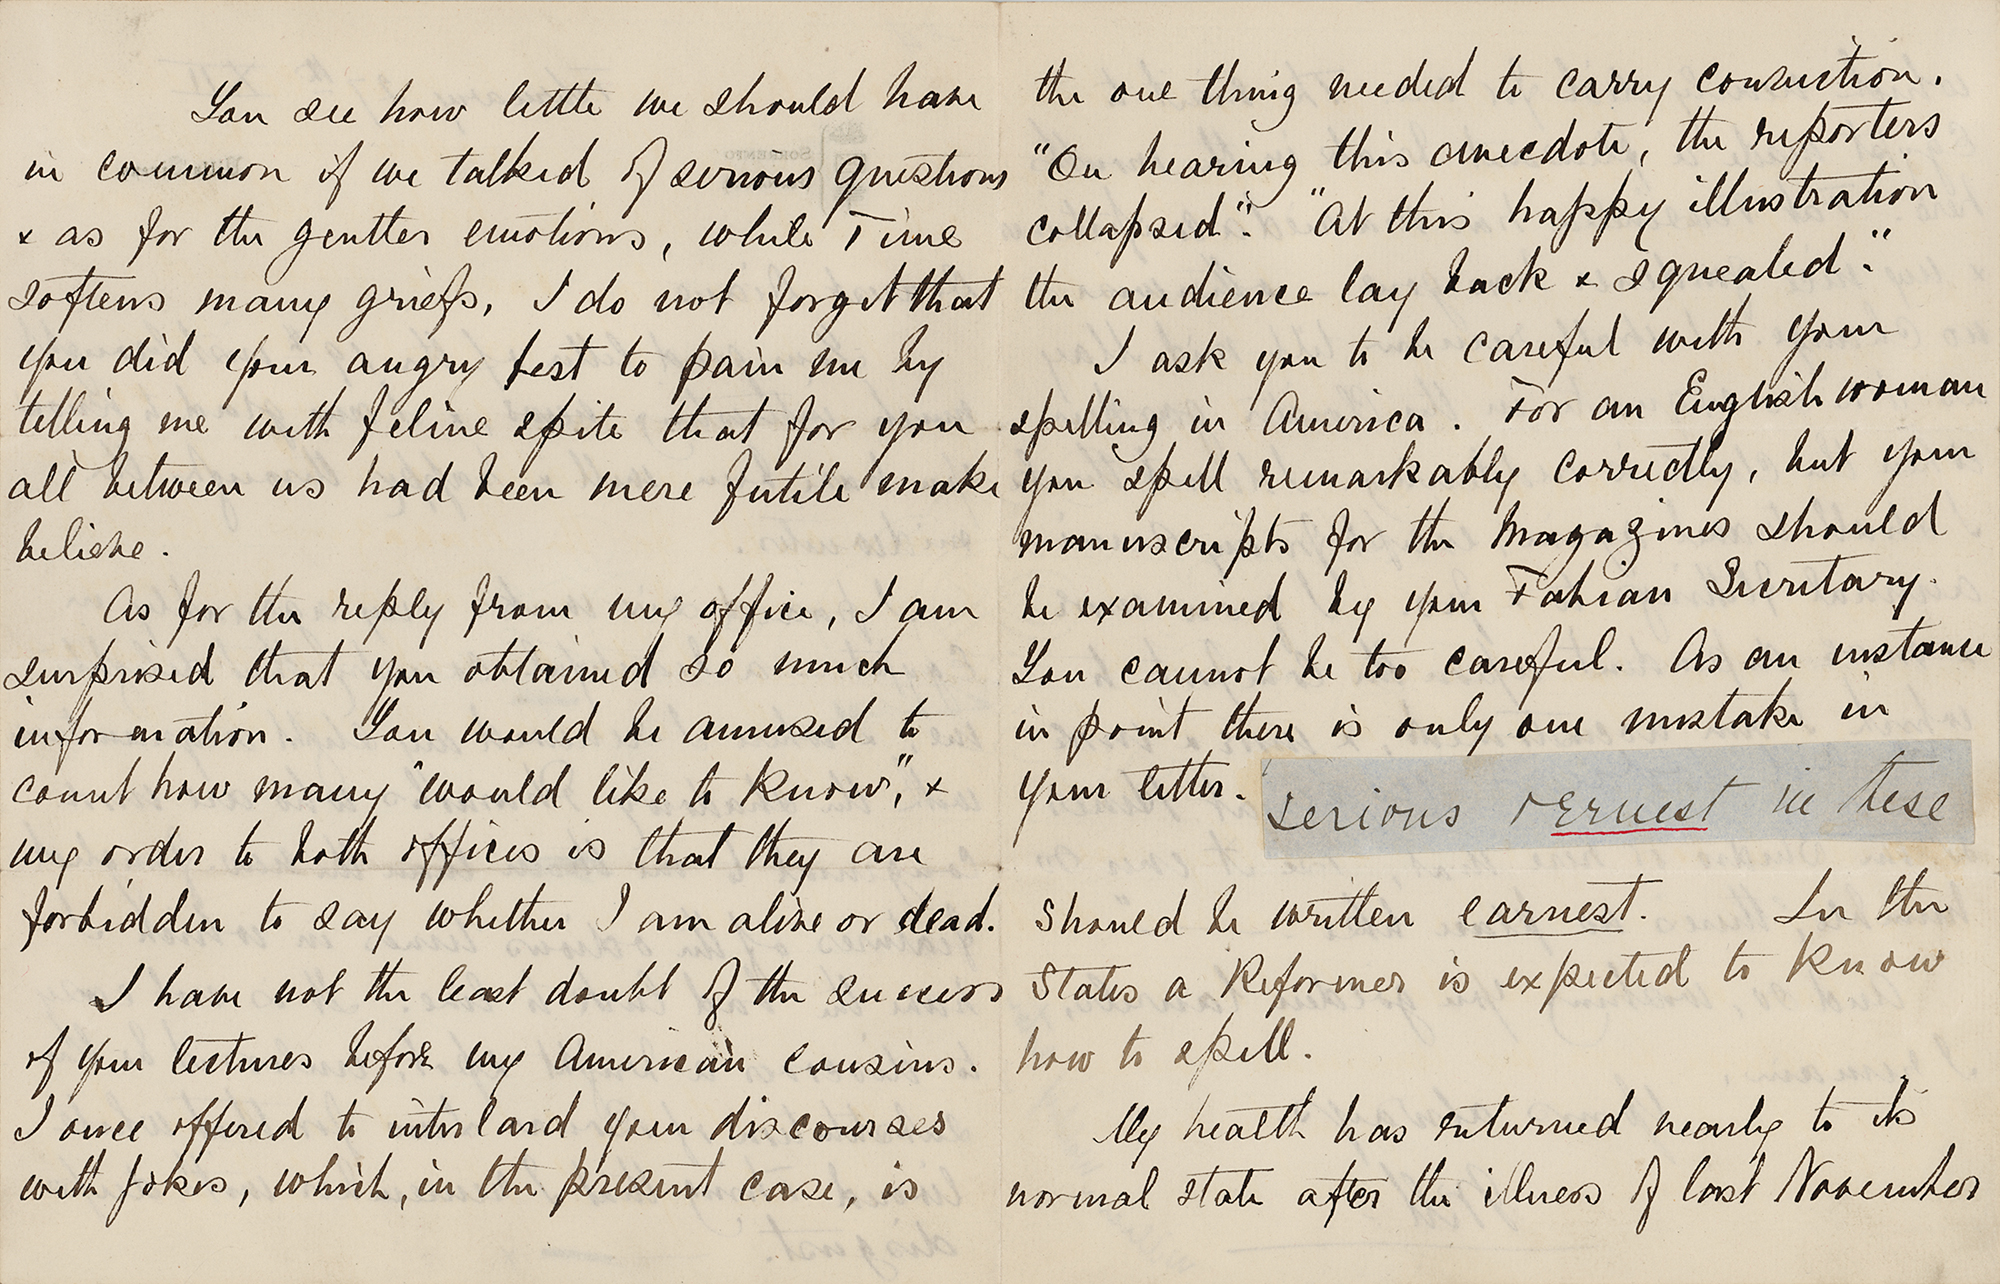 You see how little we should have
in common if we talked of serious questions
& as for the gentler emotions, while Time
softens many griefs, I do not forget that
you did your angry best to pain me by
telling me with feline spite that for you
all between us had been mere futile make
believe.
As for the reply from my office, I am
surprised that you obtained so much
information. You would be amused to
count how many "would like to know", &
my order to both offices is that they are
forbidden to say whether I am alive or dead.
I have not the least doubt of the success
of your lectures before my American cousins.
I once offered to interlard your discourses
with jokes, which, in the present case, is
the one thing needed to carry conviction.
"On hearing this anecdote, the reporters
collapsed". "At this happy illustration
the audience lay back & squealed".
I ask you to be careful with your
spelling in America. For an Englishwoman
you spell remarkably correctly, but your
manuscripts for the Magazines should
be examined by your Fabian Secretary.
You cannot be too careful. As an instance
in point there is only one mistake in
your letter. serious & ernest in these
should be written earnest. In the
States a Reformer is expected to know
how to spell.
My health has returned nearly to its
normal state after the illness of last November